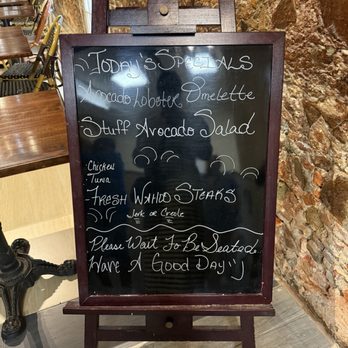 Today's Specials
Avocado Lobster Omelette
Stuff Avocado Salad
· Chicken
· Tuna
- Fresh Wahoo Steaks
Jerk or Creole
Please Wait To Be Seated.
Have A Good Day :)